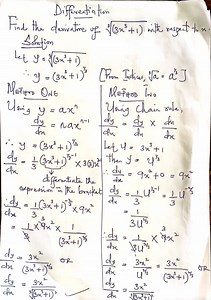 Differentiation
Find the derivative of ∛(3x³+1) with respect to x.
Solution
Let y = ∛(3x³+1)
∴ y = (3x³+1)^⅓
[From Indices, ∛a = a^⅓]
Method One
Using y = ax^n
dy/dx = nax^(n-1)
∴ y = (3x³+1)^⅓
dy/dx = 1/3 (3x³+1)^(⅓-1) × 3(3)x²
differentiate the
expression in the bracket
∴ dy/dx = 1/3 (3x³+1)^(-⅔) × 9x²
= 1/3 × 9x² × 1/(3x³+1)^⅔
dy/dx = 3x²/(3x³+1)^⅔ OR
dy/dx = 3x²/∛(3x³+1)²
Method Two
Using Chain rule,
dy/dx = dy/du × du/dx
Let u = 3x³+1
then y = u^⅓
du/dx = 9x²+0 = 9x²
dy/du = 1/3 u^(⅓-1) = 1/3 u^(-⅔)
= 1/3u^⅔
∴ dy/dx = 1/3u^⅔ × 9x²
dy/dx = 3x²/u^⅔ = 3x²/(3x³+1)^⅔ OR
dy/dx = 3x²/∛(3x³+1)²